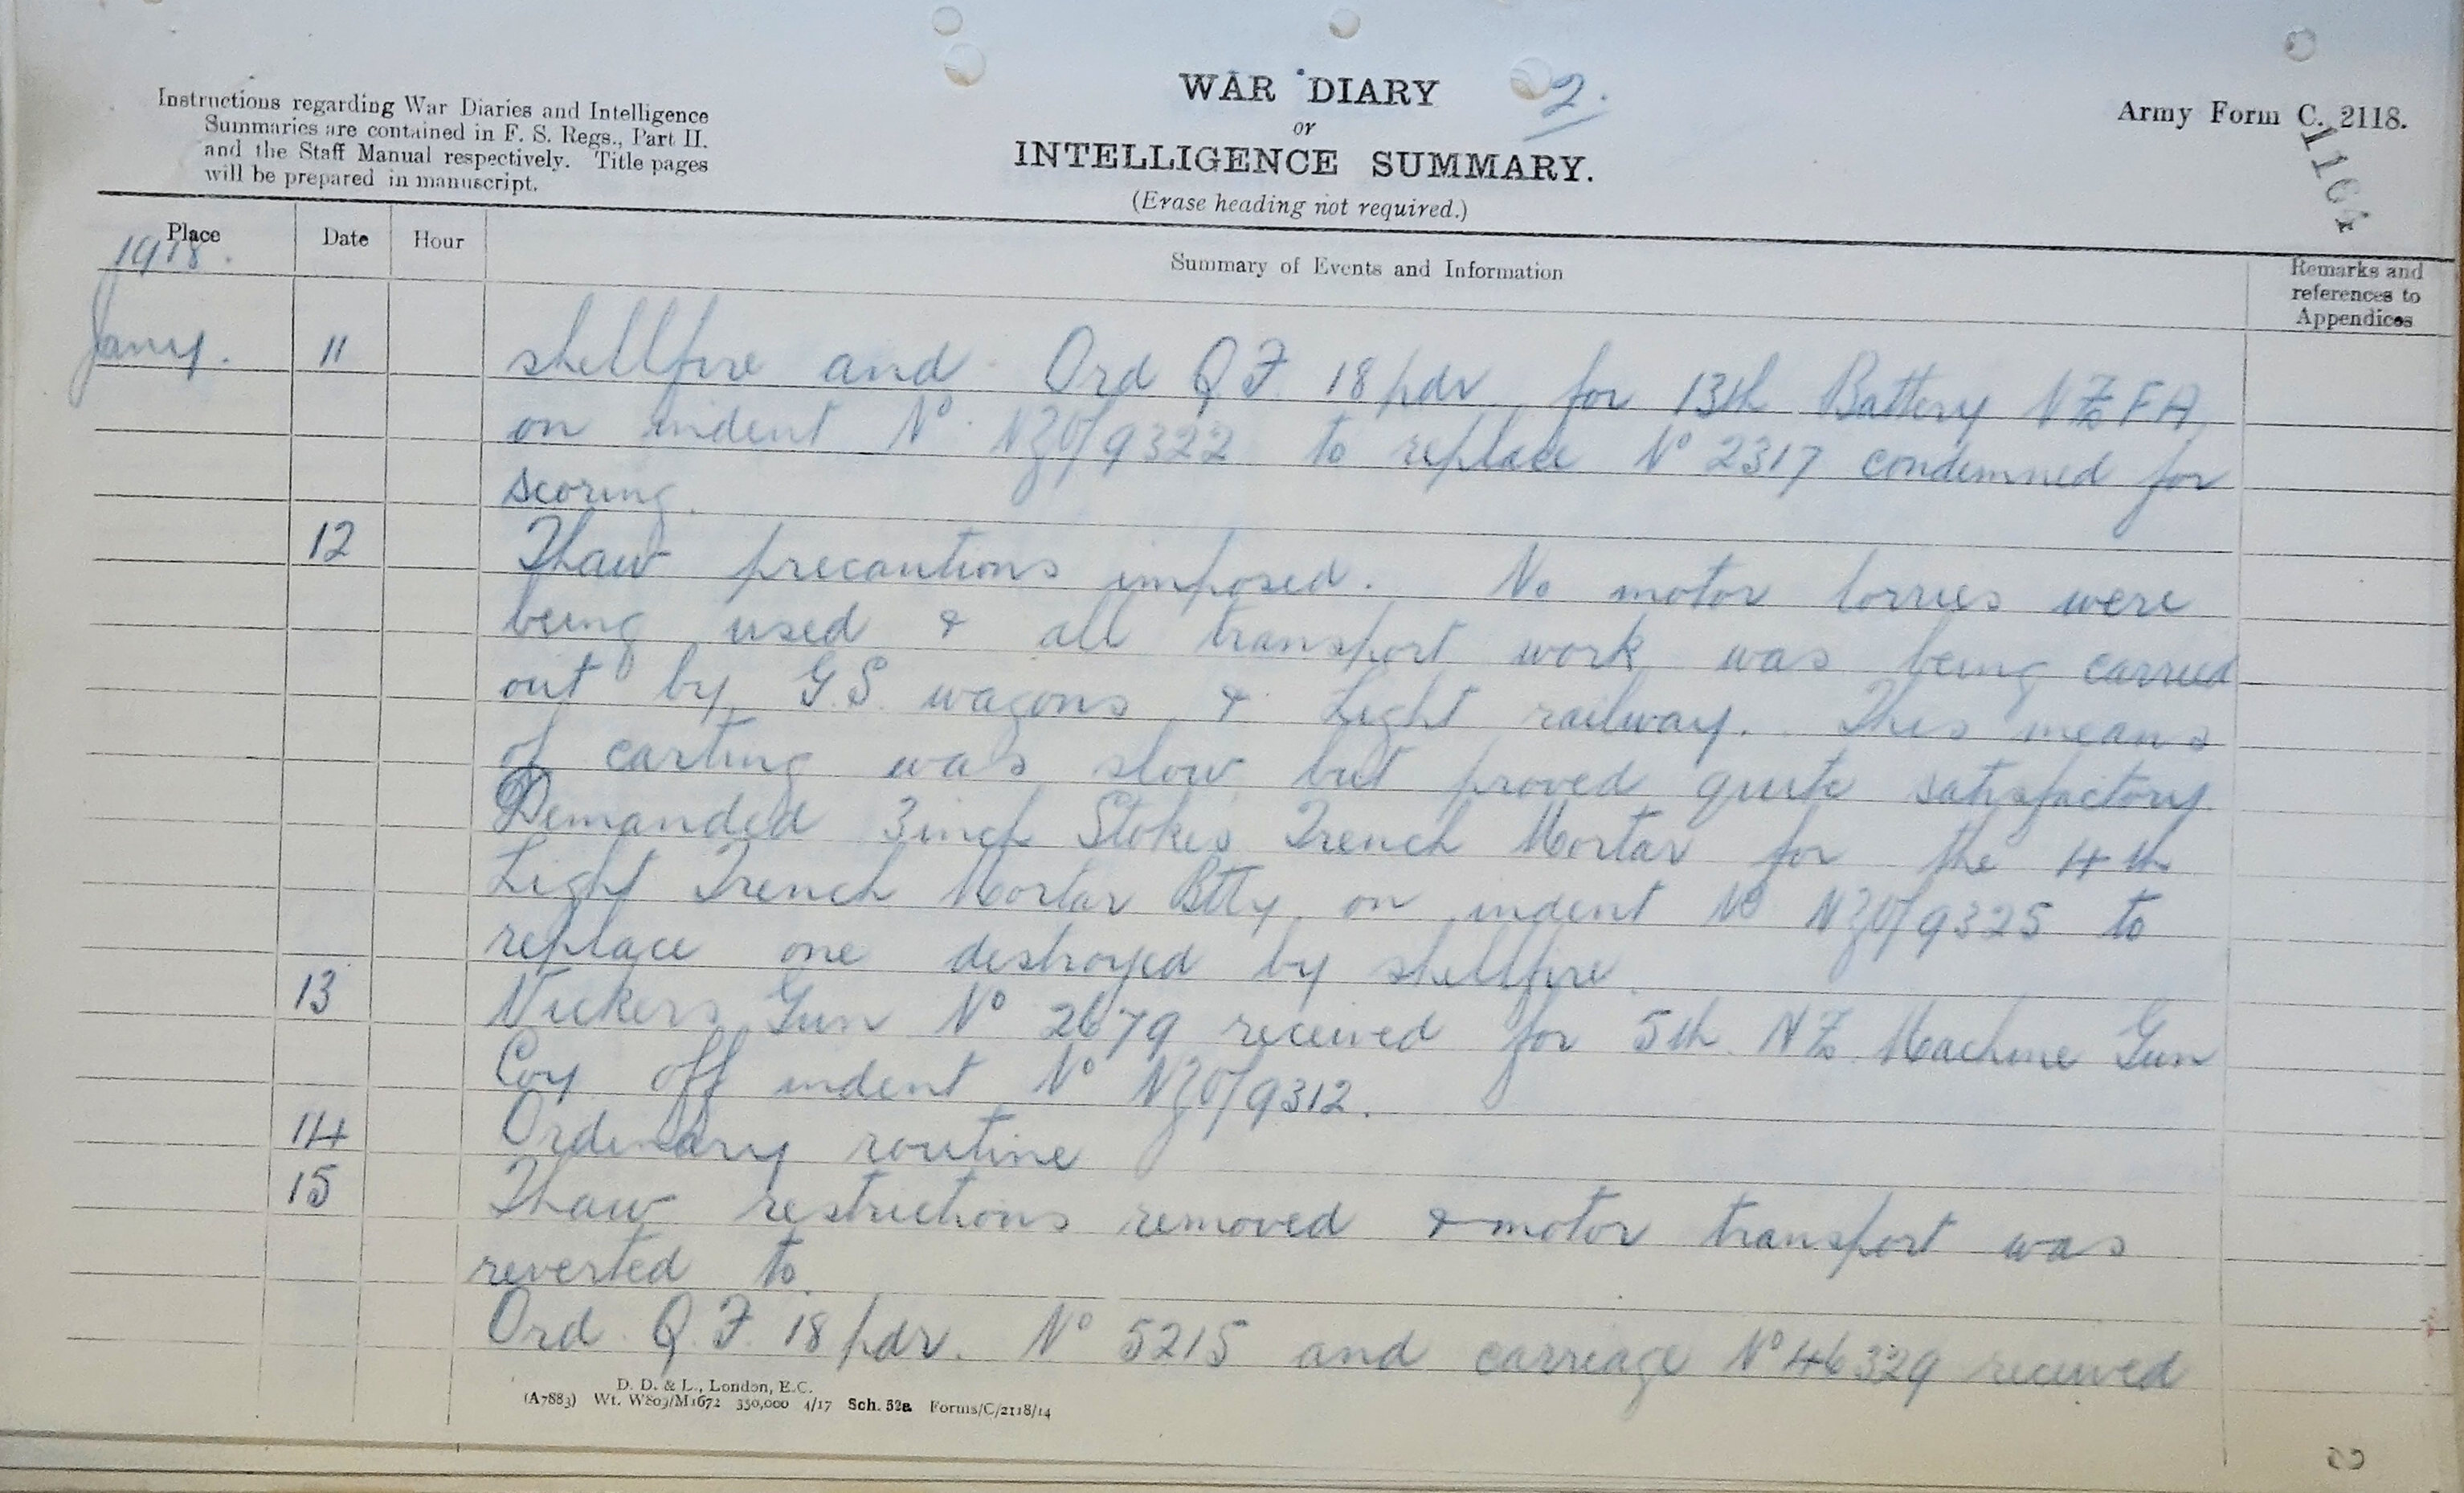 Instructions regarding War Diaries and Intelligence
Summaries are contained in F. S. Regs., Part II.
and the Staff Manual respectively. Title pages
will be prepared in manuscript.
WAR DIARY
or
INTELLIGENCE SUMMARY.
(Erase heading not required.)
2.
Army Form C. 2118.
1164
Place Date Hour Summary of Events and Information Remarks and
references to
Appendices
1918.
Jany. 11 shellfire and Ord Q.F. 18 pdr for 13th Battery NZFA
on indent No. NZO/9322 to replace No 2317 condemned for
scoring.
12 Thaw precautions imposed. No motor lorries were
being used & all transport work was being carried
out by G.S. wagons & Light railway. This means
of carting was slow but proved quite satisfactory
Demanded 3 inch Stokes Trench Mortar for the 4th
Light Trench Mortar Btty on indent No NZO/9325 to
replace one destroyed by shellfire.
13 Vickers Gun No 2679 received for 5th NZ Machine Gun
Coy off indent No NZO/9312.
14 Ordinary routine
15 Thaw restrictions removed & motor transport was
reverted to
Ord. Q.F. 18 pdr. No 5215 and carriage No 46329 received
D. D. & L., London, E.C.
(A7883) Wt. W809/M1672 350,000 4/17 Sch. 52a Forms/C/2118/14